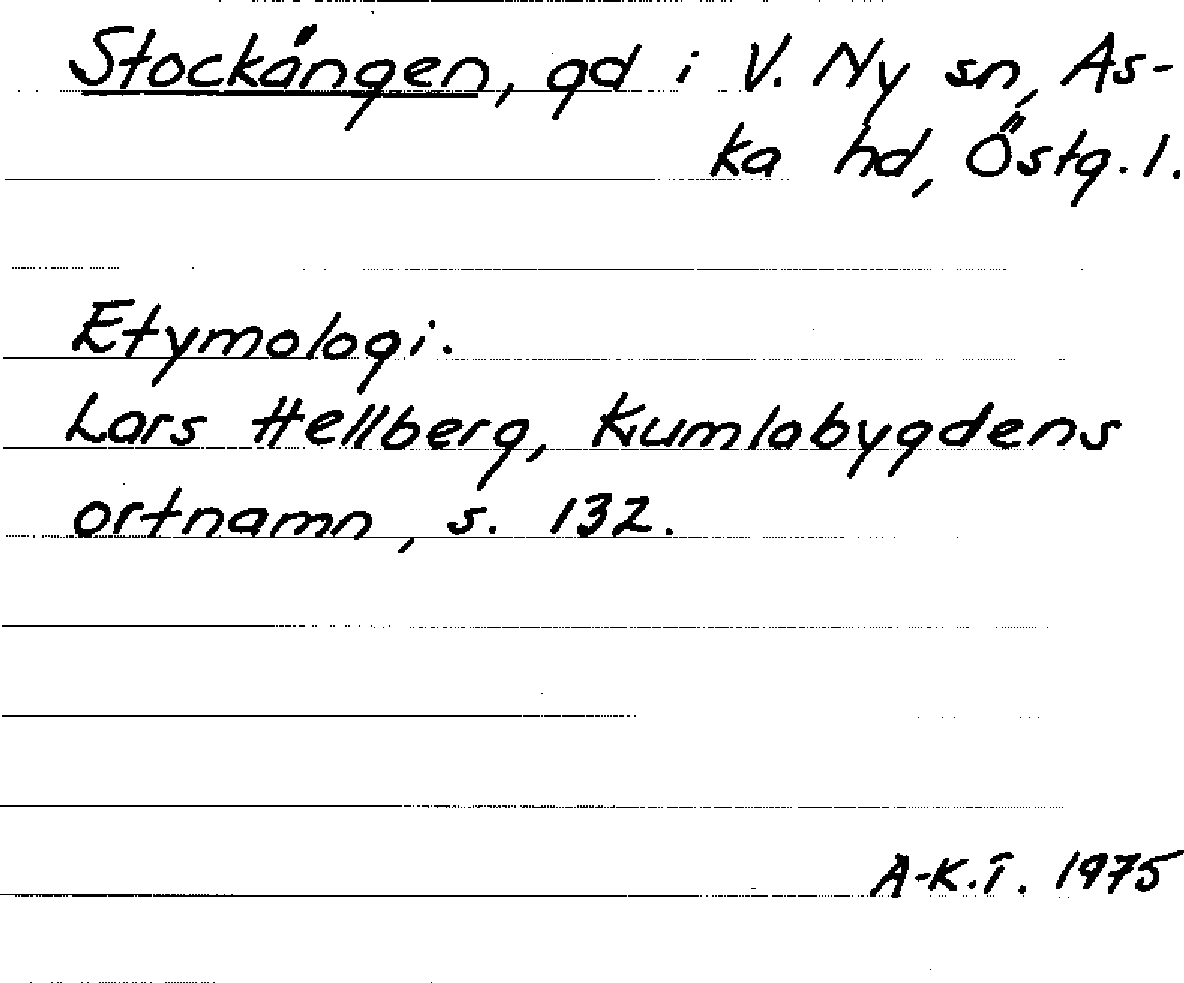 Stockängen, gd i V. Ny sn, As-
ka hd, Östg. l.
Etymologi.
Lars Hellberg, Kumlabygdens
ortnamn, s. 132.
A-K.T. 1975